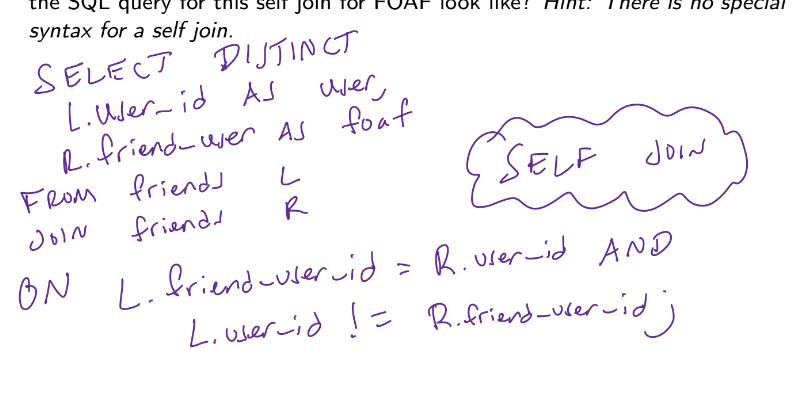 the SQL query for this self join for FOAF look like? Hint: There is no special
syntax for a self join.
SELECT DISTINCT
L.user_id AS user,
R.friend_user AS foaf
FROM friends L
JOIN friends R
SELF JOIN
ON L.friend_user_id = R.user_id AND
L.user_id != R.friend_user_id;